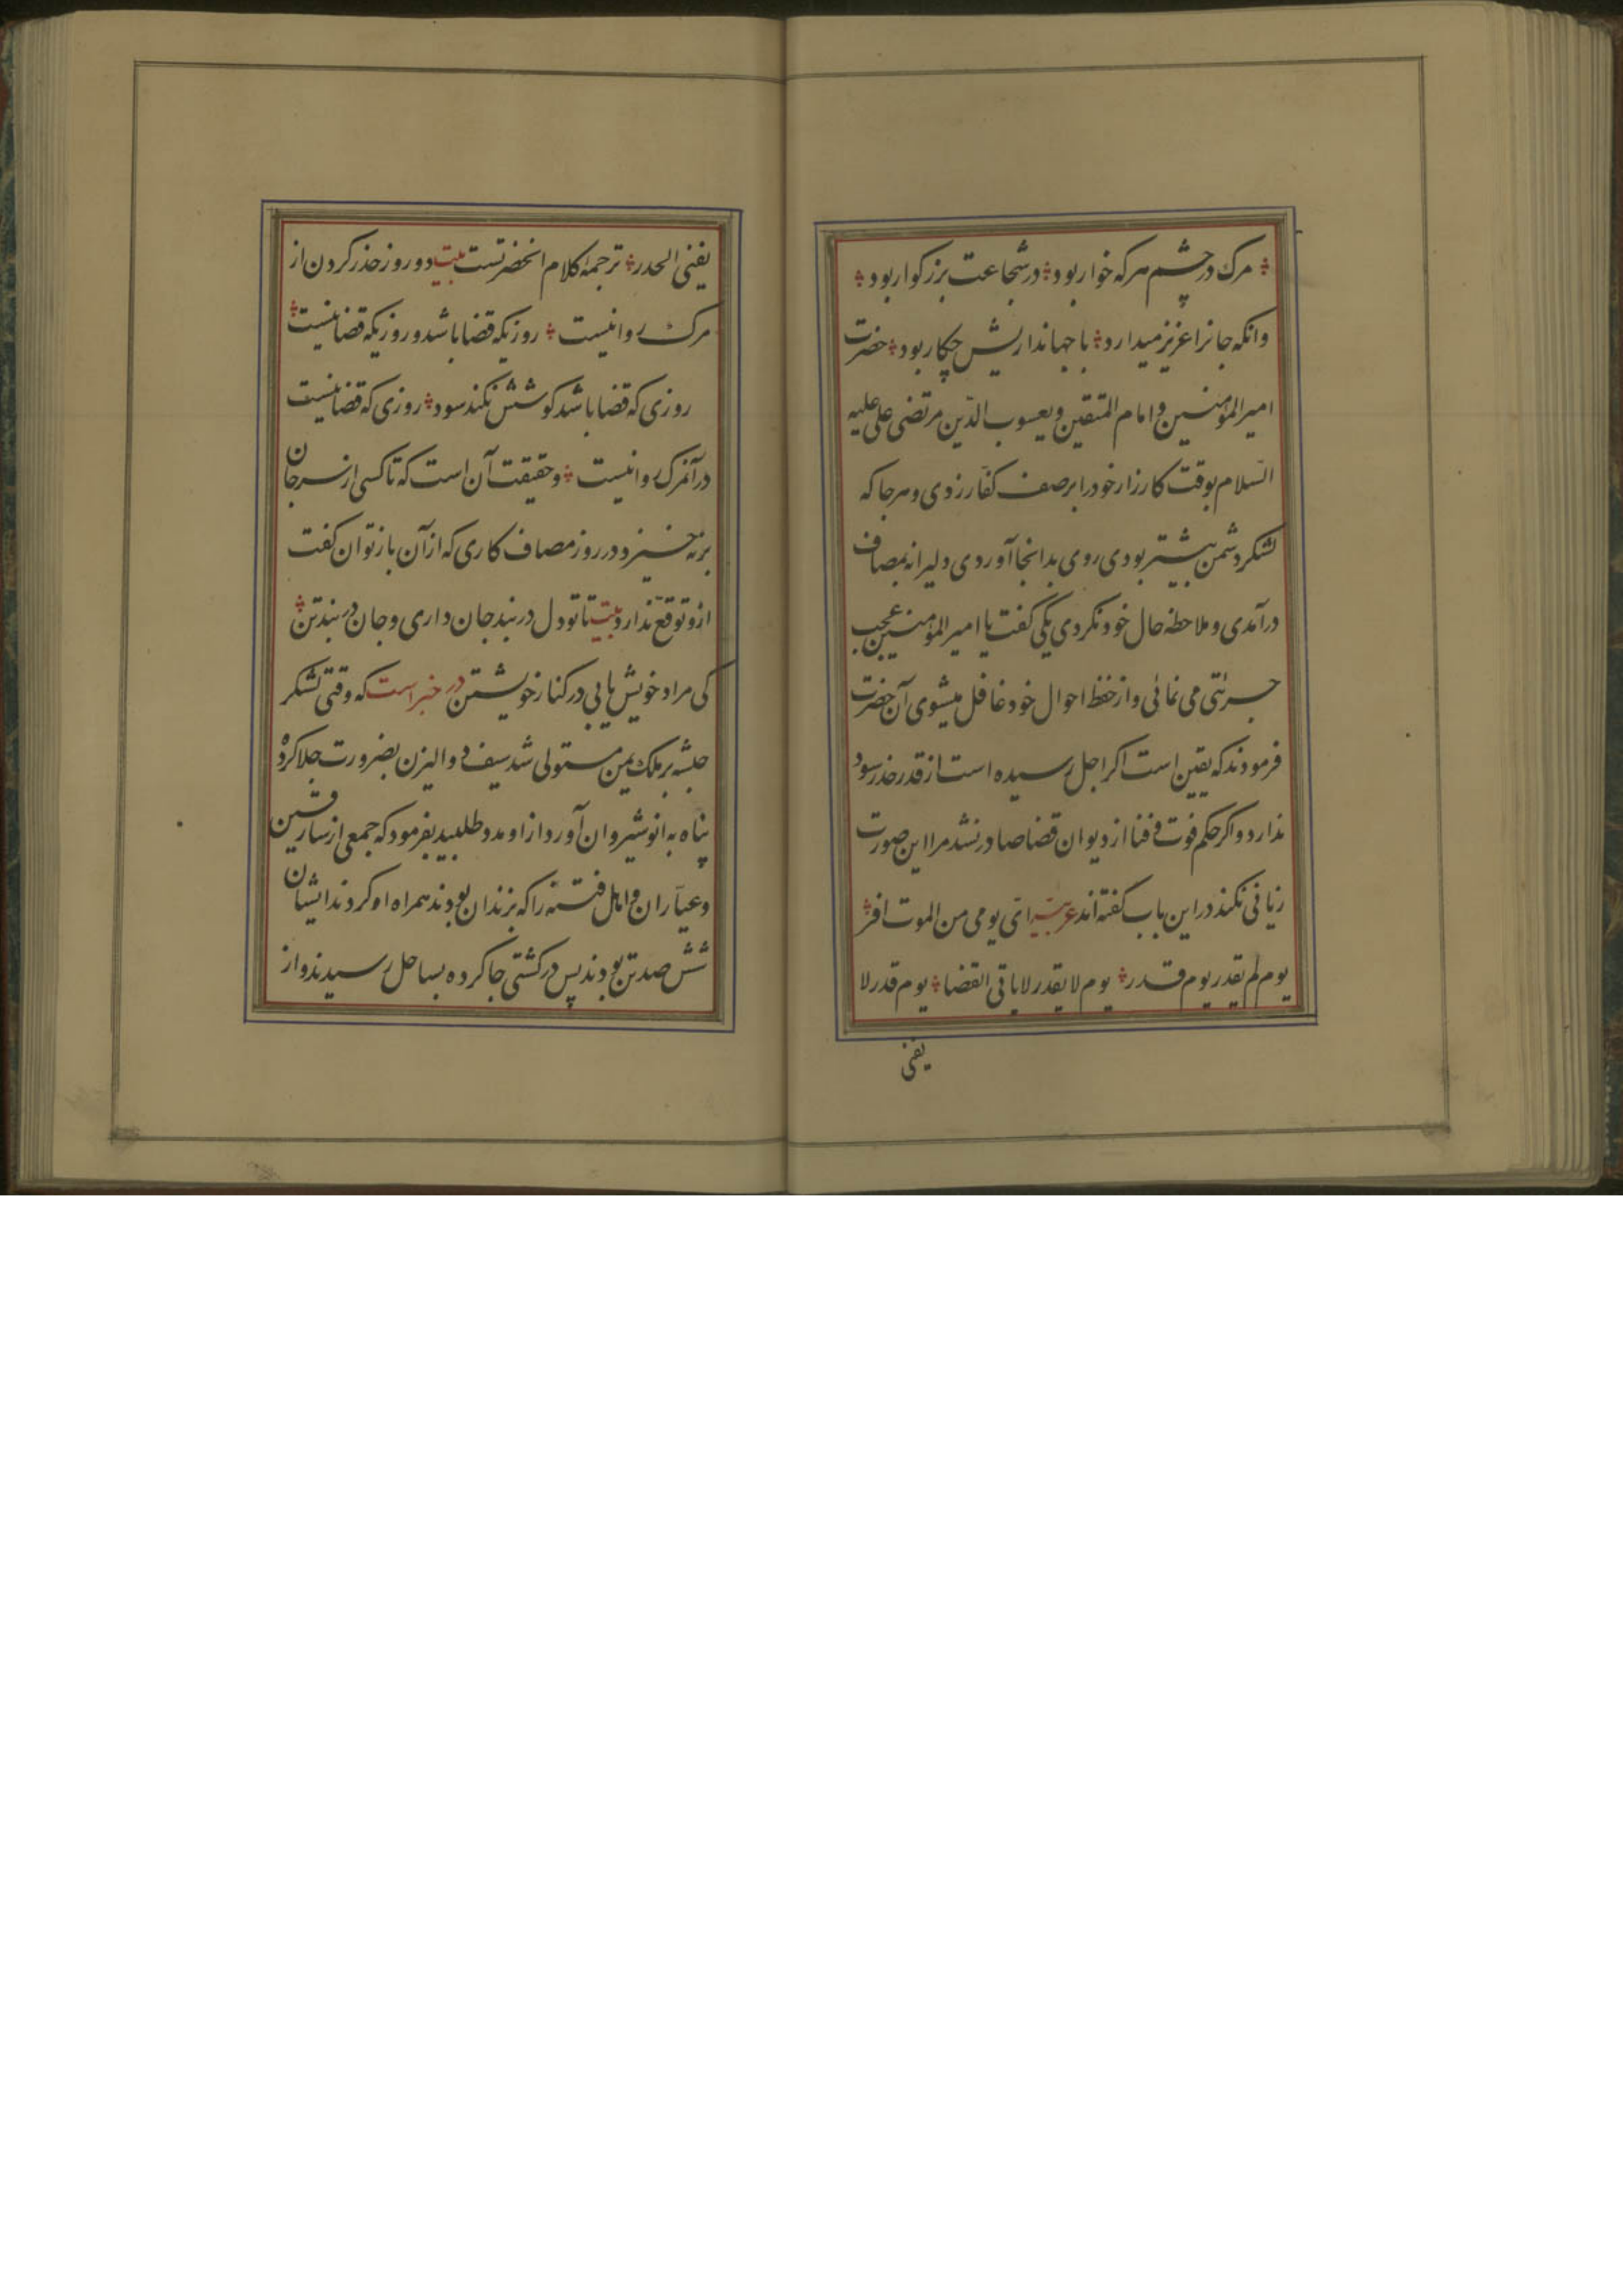 مرک در چشم هر که خوار بود در شجاعت بزرکوار بود
وانکه جانرا عزیز میدارد با جهانداریش چکار بود حضرت
امیر المؤمنین و امام المتقین و یعسوب الدّین مرتضی علی علیه
السّلام بوقت کارزار خود را بر صف کفّار زدی و هر جا که
لشکر دشمن بیشتر بودی روی بدانجا آوردی و دلیرانه بمصاف
درآمدی و ملاحظه حال خود نکردی یکی کفت یا امیر المؤمنین عجب
جرئتی می نمائی و از حفظ احوال خود غافل میشوی آن حضرت
فرمودند که یقین است اکر اجل رسیده است از قدر حذر سود
ندارد و اکر حکم فوت و فنا از دیوان قضا صادر نشد مرا این صورت
زیانی نکند در این باب کفته اند عربیّه ایّ یومی من الموت افرّ
یوم لم یقدر یوم قدر یوم لا یقدر لا یاتی القضا یوم قدر لا
یغنی
یغنی الحدر ترجمهٔ کلام انحضرتست بیت دو روز حذر کردن از
مرک روا نیست روزیکه قضا باشد و روزیکه قضا نیست
روزی که قضا باشد کوشش نکند سود روزی که قضا نیست
در آن مرک روا نیست و حقیقت آن است که تا کسی از سر جان
برنه خیزد در روز مصاف کاری که از آن باز توان کفت
ازو توقّع ندارد بیت تا تو دل در بند جان داری و جان در بند تن
کی مراد خویش یابی در کنار خویشتن در خبر است که وقتی لشکر
حبشه بر ملک یمن مستولی شد سیف ذوالیزن بضرورت جلا کرده
پناه به انوشیروان آورد و از او مدد طلبید بفرمود که جمعی از سارقین
و عیّاران و اهل فتنه را که بزندان بودند همراه او کردند ایشان
شش صد تن بودند پس در کشتی جا کرده بساحل رسیدند و از